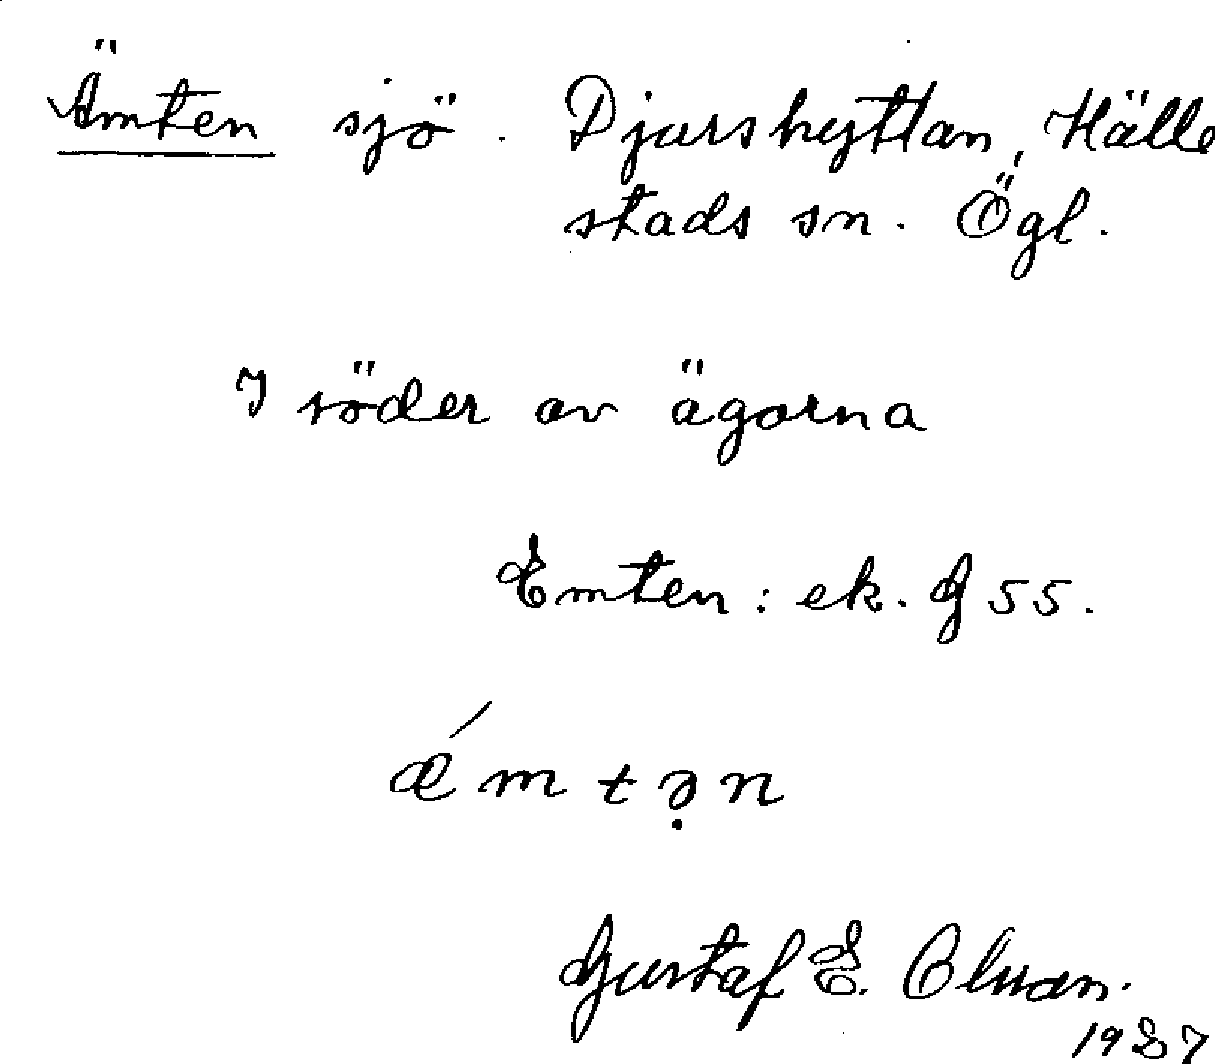 Ämten sjö. Djurshyttan, Hälle
stads sn. Ögl.
I söder av ägorna
Emten: ek. G 55.
ǽ m t ə̣ n
Gustaf E. Olsson.
1927